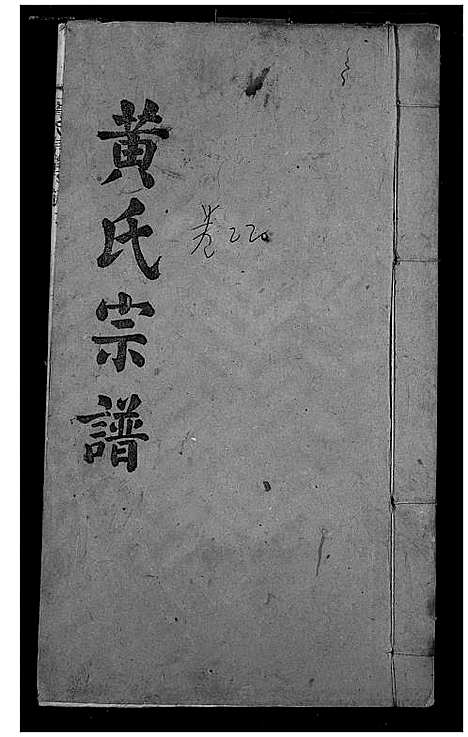 黄氏宗譜
卷220